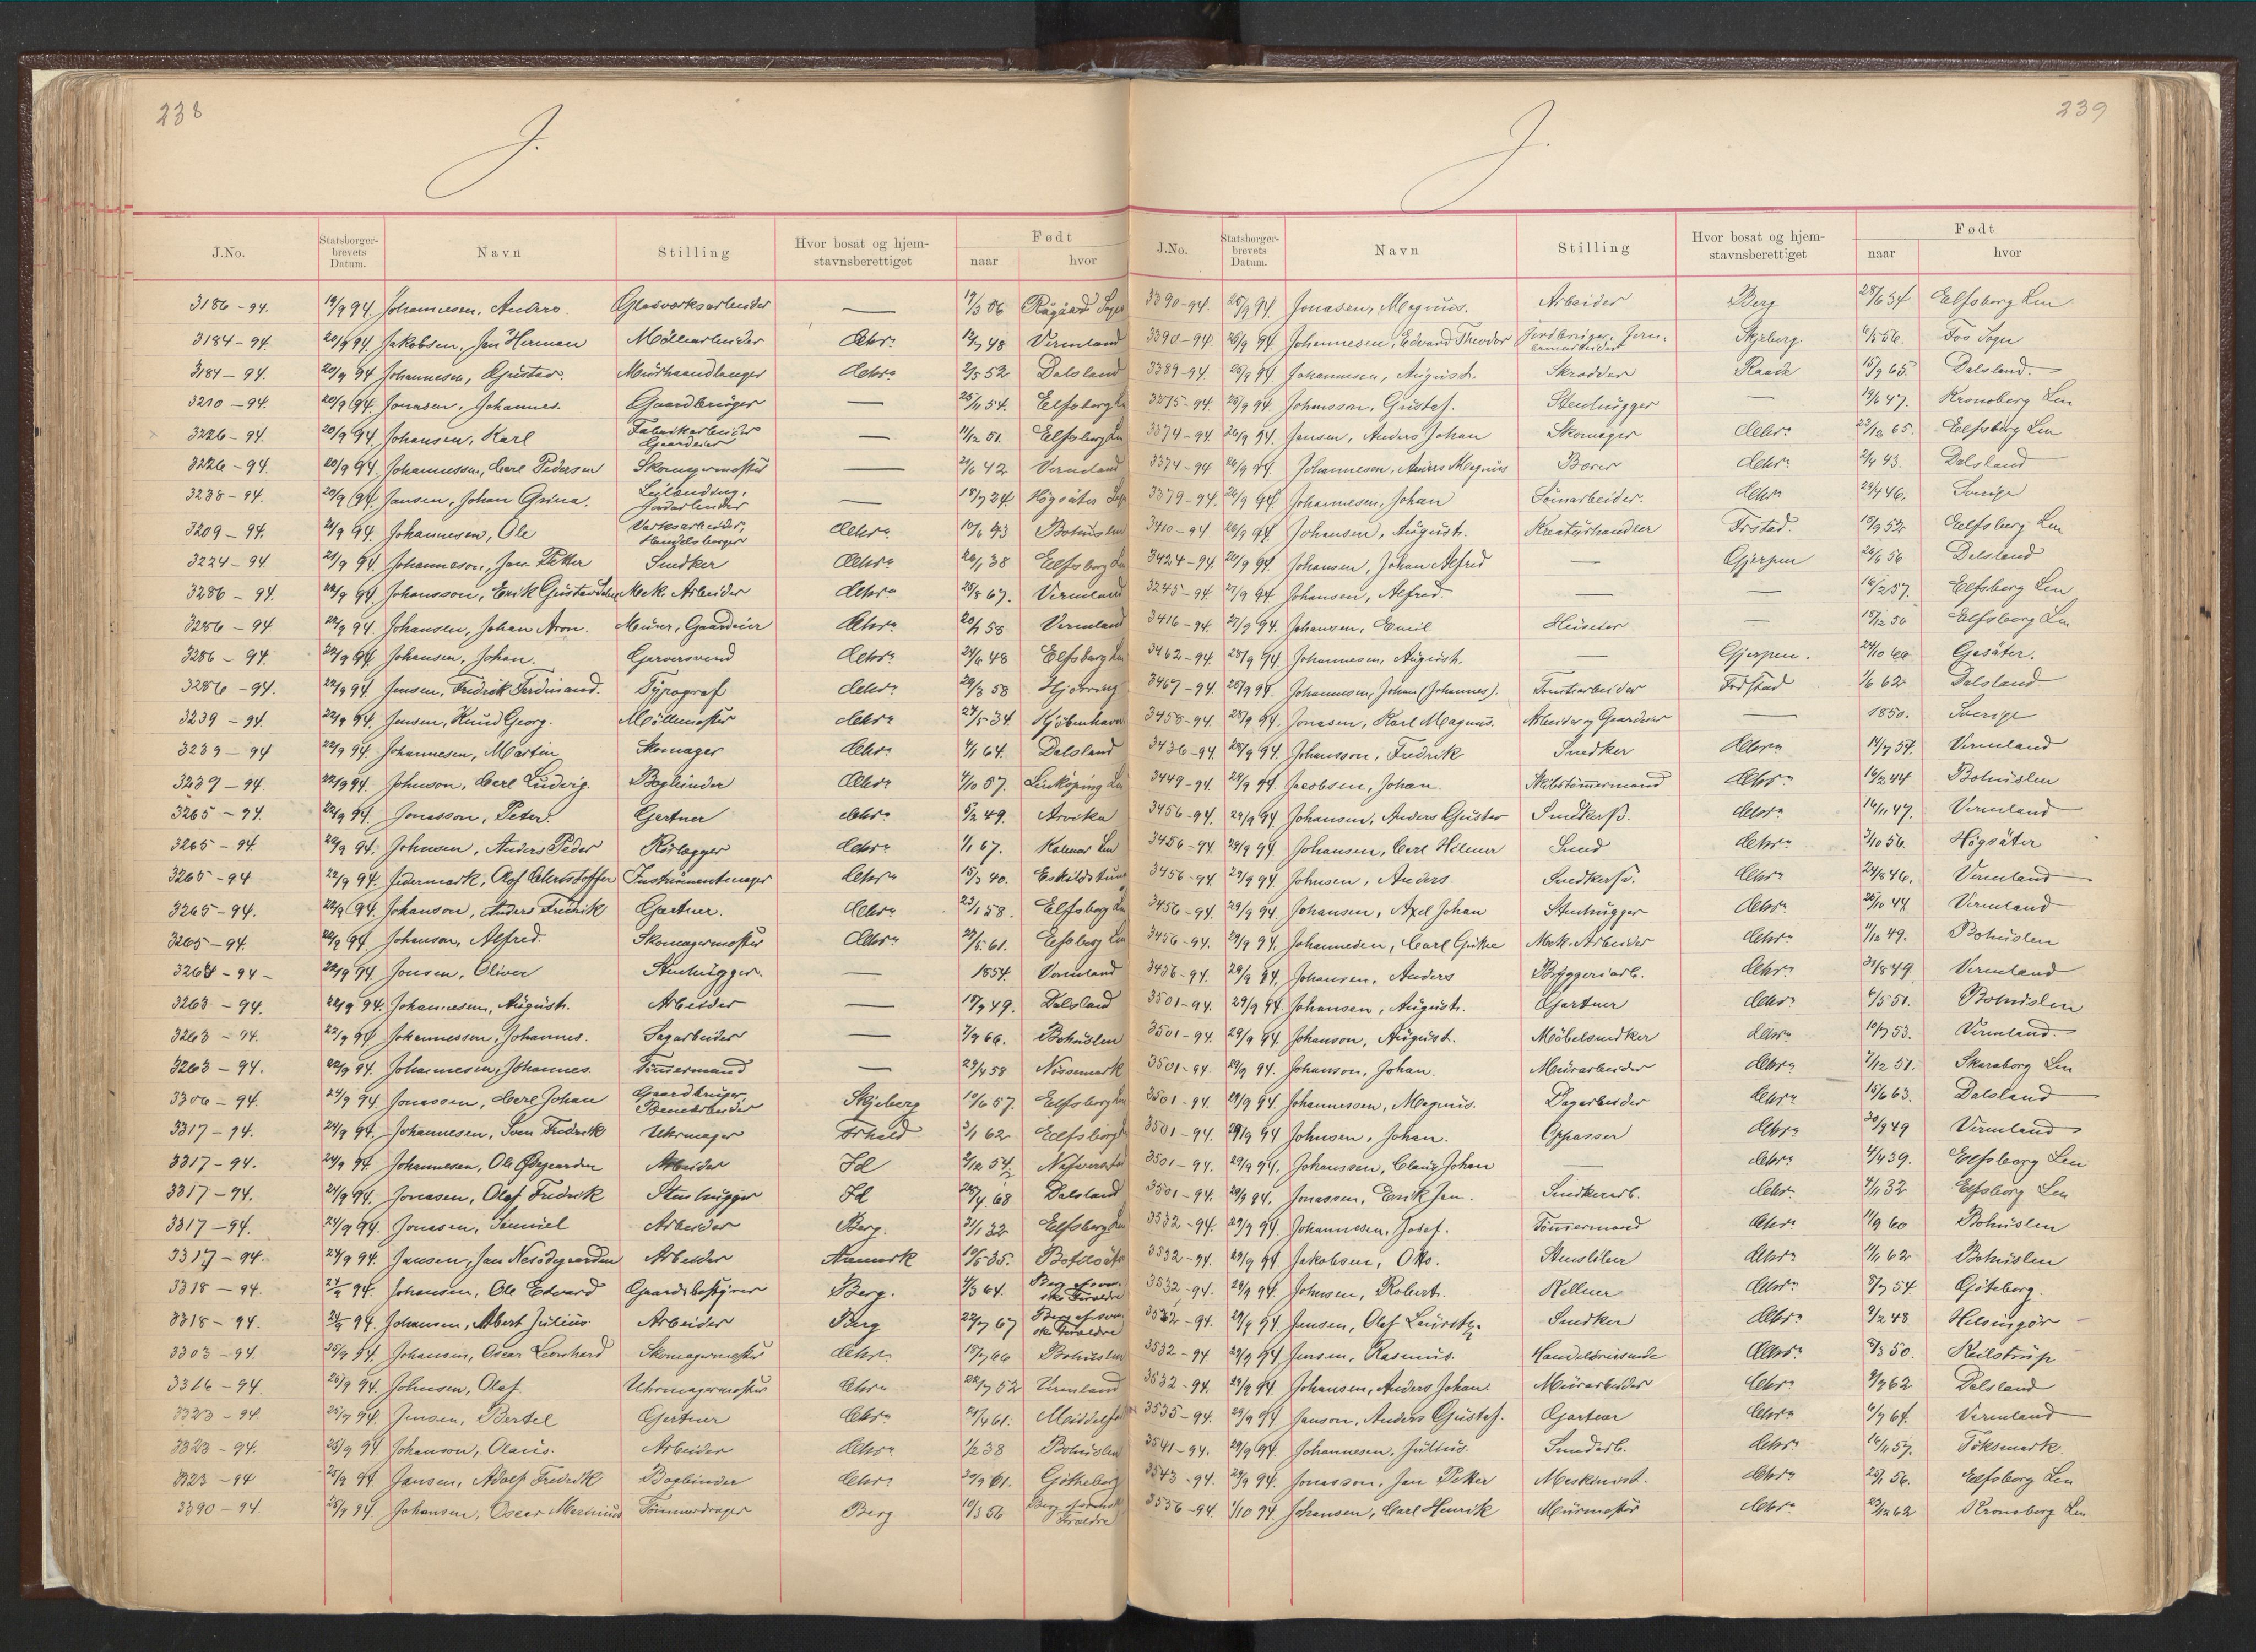 238
J.
J.No. Statsborger-brevets Datum. Navn Stilling Hvor bosat og hjem-stavnsberettiget Født naar hvor
3186 - 94. 19/9 94. Johannesen, Anders. Glasværksarbeider — 17/3 56
3184 - 94. 20/9 94. Jakobsen, Jan Herman Møllearbeider Chra 12/7 48 Vermland
3184 - 94. 20/9 94 Johannesen, Gustav. Murhaandlanger Chra 2/5 52 Dalsland
3210 - 94. 20/9 94. Jonasen, Johannes. Gaardbruger — 25/11 54. Elfsborg
3226 - 94. 20/9 94. Johansen, Karl Fabrikarbeider Gaardeier — 11/12 51. Elfsborg Len
3226 - 94. 20/9 94. Johannessen, Carl Pedersen Skomagermester — 21/6 42 Vermland
3238 - 94. 20/9 94. Jansen, Johan Grina. Leilænding, Jordarbeider — 18/7 34. Högsäter
3209 - 94. 21/9 94. Johannesen, Ole Værksarbeider, Handelsborger Chra 10/6 43 Bohuslen
3224 - 94 21/9 94. Johanneson, Jan Petter Snedker Chra 26/1 38 Elfsborg Len
3286 - 94. 22/9 94. Johansson, Erik Gustav Mek. Arbeider Chra 25/8 67. Vermland
3286 - 94. 22/9 94. Johansen, Johan Aron. Murer, Gaardeier Chra 20/1 58 Vermland
3286 - 94. 22/9 94. Johansen, Johan. Garversvend Chra 24/6 48 Elfsborg Len
3286 - 94. 22/9 94. Jensen, Fredrik Ferdinand. Typograf Chra 29/3 58 Hjørring
3239 - 94. 22/9 94. Jensen, Knud Georg. Møllemester Chra 24/5 34. Kjöbenhavn
3239 - 94 22/9 94. Johannesen, Martin Skomager Chra 4/1 64. Dalsland
3239 - 94. 22/9 94. Johnson, Carl Ludvig. Bogbinder Chra 4/10 57. Linköping Len
3265 - 94. 22/9 94. Jonasson, Peter. Gartner Chra 5/2 49. Arvika
3265 - 94. 22/9 94. Johnsen, Anders Peder Rørlægger Chra 1/1 67. Kalmar Len
3265 - 94 22/9 94. Jedermark, Olof Christoffer Instrumentmager Chra 15/3 40. Eskilstuna
3265 - 94. 22/9 94. Johanson, Anders Fredrik Gartner. Chra 23/1 58. Elfsborg Len
3265 - 94. 22/9 94. Johanson, Alfred. Skomagermester Chra 27/5 61. Elfsborg Len
3264 - 94 - 22/9 94. Jonsen, Oliver Stenhugger. — 1854. Vermland
3263 - 94. 22/9 94. Johannesen, August. Arbeider — 15/9 49. Dalsland
3263 - 94. 22/9 94. Johannessen, Johannes. Sagarbeider — 7/9 66. Bohuslen
3263 - 94. 22/9 94. Johannesen, Johannes. Tømmermand — 29/4 58 Nössemark
3306 - 94. 24/9 94 Jonassen, Carl Johan Gaardbruger, Skjeberg 10/6 57. Elfsborg Len
3317 - 94. 24/9 94. Johannesen, Sven Fredrik Uhrmager Frhald 3/1 62 Elfsborg
3317 - 94. 24/9 94 Johannesen, Ole Arbeider Id 2/12 54
3317 - 94. 24/9 94. Jonasen, Olaf Fredrik Stenhugger Id 25/4 68 Dalsland
3317 - 94. 24/9 94. Jonasen, Samuel Arbeider Berg. 31/1 32 Elfsborg Len
3317 - 94. 24/9 94. Jansen, Jan Arbeider Aremark 10/5 35.
3318 - 94. 24/9 94. Johansen, Ole Edvard Gaardsbestyrer Berg. 4/3 64. Berg af svenske Forældre
3318 - 94. 24/9 94. Johansen, Albert Julius Arbeider Berg 22/7 67 Berg af svenske Forældre
3303 - 94. 25/9 94. Johansen, Oscar Leonhard Skomagermester Chra 18/7 66 Bohuslen
3316 - 94. 25/9 94. Johnsen, Olaf. Uhrmagermester Chra 22/7 52 Vermland
3323 - 94. 25/9 94. Jensen, Bertel Gartner Chra 21/4 61. Middelfart
3323 - 94. 25/9 94. Johanson, Olaus. Arbeider Chra 1/2 38 Bohuslen
3323 - 94 25/9 94 Jansen, Adolf Fredrik Bogbinder Chra 30/9 61. Götheborg
3390 - 94. 25/9 94. Johansen, Oscar Tømmerdrager Berg 10/3 56 Berg af svenske Forældre
239
J.
J.No. Statsborger-brevets Datum. Navn Stilling Hvor bosat og hjem-stavnsberettiget Født naar hvor
3390 - 94. 25/9 94. Jonasen, Magnus. Arbeider Berg 28/6 34 Elfsborg Len
3390 - 94. 26/9 94. Johannesen, Edvard Theodor Jordbruger, Skjeberg 6/5 56. Fos Sogn
3389 - 94. 25/9 94 Johannesen, August. Skrædder Raade 15/9 65. Dalsland.
3375 - 94. 25/9 94. Johansson, Gustaf. Stenhugger — 19/6 47. Kronoberg Len
3374 - 94. 26/9 94. Jansen, Anders Johan Skomager Chra 23/12 65. Elfsborg Len
3374 - 94 26/9 94. Johannesen, Anders Magnus Bærer Chra 2/4 43. Dalsland
3379 - 94. 26/9 94. Johannesen, Johan Chra 29/4 46. Sverige
3410 - 94. 26/9 94. Johansen, August. Kreaturhandler Frstad. 19/9 52 Elfsborg Len
3424 - 94. 26/9 94. Johansen, Johan Alfred — Gjerpen 26/6 56 Dalsland
3245 - 94. 27/9 94 Johansen, Alfred. — — 16/2 57. Elfsborg Len
3416 - 94. 27/9 94. Johansen, Emil. Huseier — 15/12 50 Elfsborg Len
3462 - 94. 28/9 94 Johannesen, August. — Gjerpen. 24/10 60 Gesäter.
3467 - 94 28/9 94. Johannesen, Johan (Johannes). Tomtearbeider Frstad 1/6 62 Dalsland
3458 - 94. 28/9 94. Jonasen, Karl Magnus. Arbeider og Gaardeier — 1850. Sverige
3436 - 94 28/9 94. Johansson, Fredrik Snedker Chra 14/7 54. Vermland
3449 - 94. 29/9 94. Jacobsen, Johan. Skibstømmermand Chra 16/2 44 Bohuslen
3456 - 94. 29/9 94 Johansen, Anders Gustav Snedkers. Chra 16/11 47. Vermland
3456 - 94. 29/9 94. Johansen, Carl Hilmer Smed Chra 3/10 56. Högsäter
3456 - 94. 29/9 94. Johnsen, Anders. Chra 24/8 46. Vermland
3456 - 94. 29/9 94. Johansen, Axel Johan Stenhugger Chra 25/10 44 Vermland
3456 - 94. 29/9 94. Johannesen, Carl Mek. Arbeider Chra 4/12 49. Bohuslen
3456 - 94. 29/9 94. Johansen, Anders Bryggeriarb. Chra 31/8 49 Vermland
3501 - 94. 29/9 94 Johansen, August. Gartner Chra 6/5 51. Bohuslen
3501 - 94. 29/9 94 Johanson, August. Møbelsnedker Chra 10/7 53. Vermland.
3501 - 94 29/9 94. Johanson, Johan. Murarbeider Chra 7/12 51. Skaraborg Len
3501 - 94. 29/9 94. Johannessen, Magnus. Dagarbeider Chra 15/6 63. Dalsland
3501 - 94. 29/9 94 Johnsen, Johan. Oppasser Chra 30/9 49 Vermland
3501 - 94. 29/9 94. Johanssen, Claus Johan — Chra 4/4 39. Elfsborg Len
3501 - 94. 29/9 94. Jonassen, Erik Jan. Snedkerarb. Chra 4/11 32 Elfsborg Len
3532 - 94. 29/9 94. Johannesen, Josef. Tømmermand Chra 11/9 60 Bohuslen
3532 - 94. 29/9 94 Jakobsen, Otto. Chra 19/11 62 Bohuslen
3532 - 94. 29/9 94. Johnsen, Robert. Kellner Chra 8/7 54 Göteborg.
3532 - 94. 29/9 94 Jensen, Olaf Lauritz. Snedker Chra 9/2 48 Helsingör
3532 - 94 29/9 94 Jensen, Rasmus. Handelsreisende Chra 8/3 50.
3532 - 94. 29/9 94. Johansen, Anders Johan. Murarbeider Chra 9/9 62 Dalsland
3535 - 94. 29/9 94 Janson, Anders Gustaf. Gartner Chra 6/7 64. Vermland
3541 - 94. 29/9 94. Johannesen, Julius. Chra 16/11 57. Töksmark.
3543 - 94. 29/9 94. Jonasson, Jan Petter Maskinist. Chra 25/1 56. Elfsborg Len
3556 - 94. 1/10 94. Johansen, Carl Henrik Murmester Chra 23/12 62 Kronoberg Len